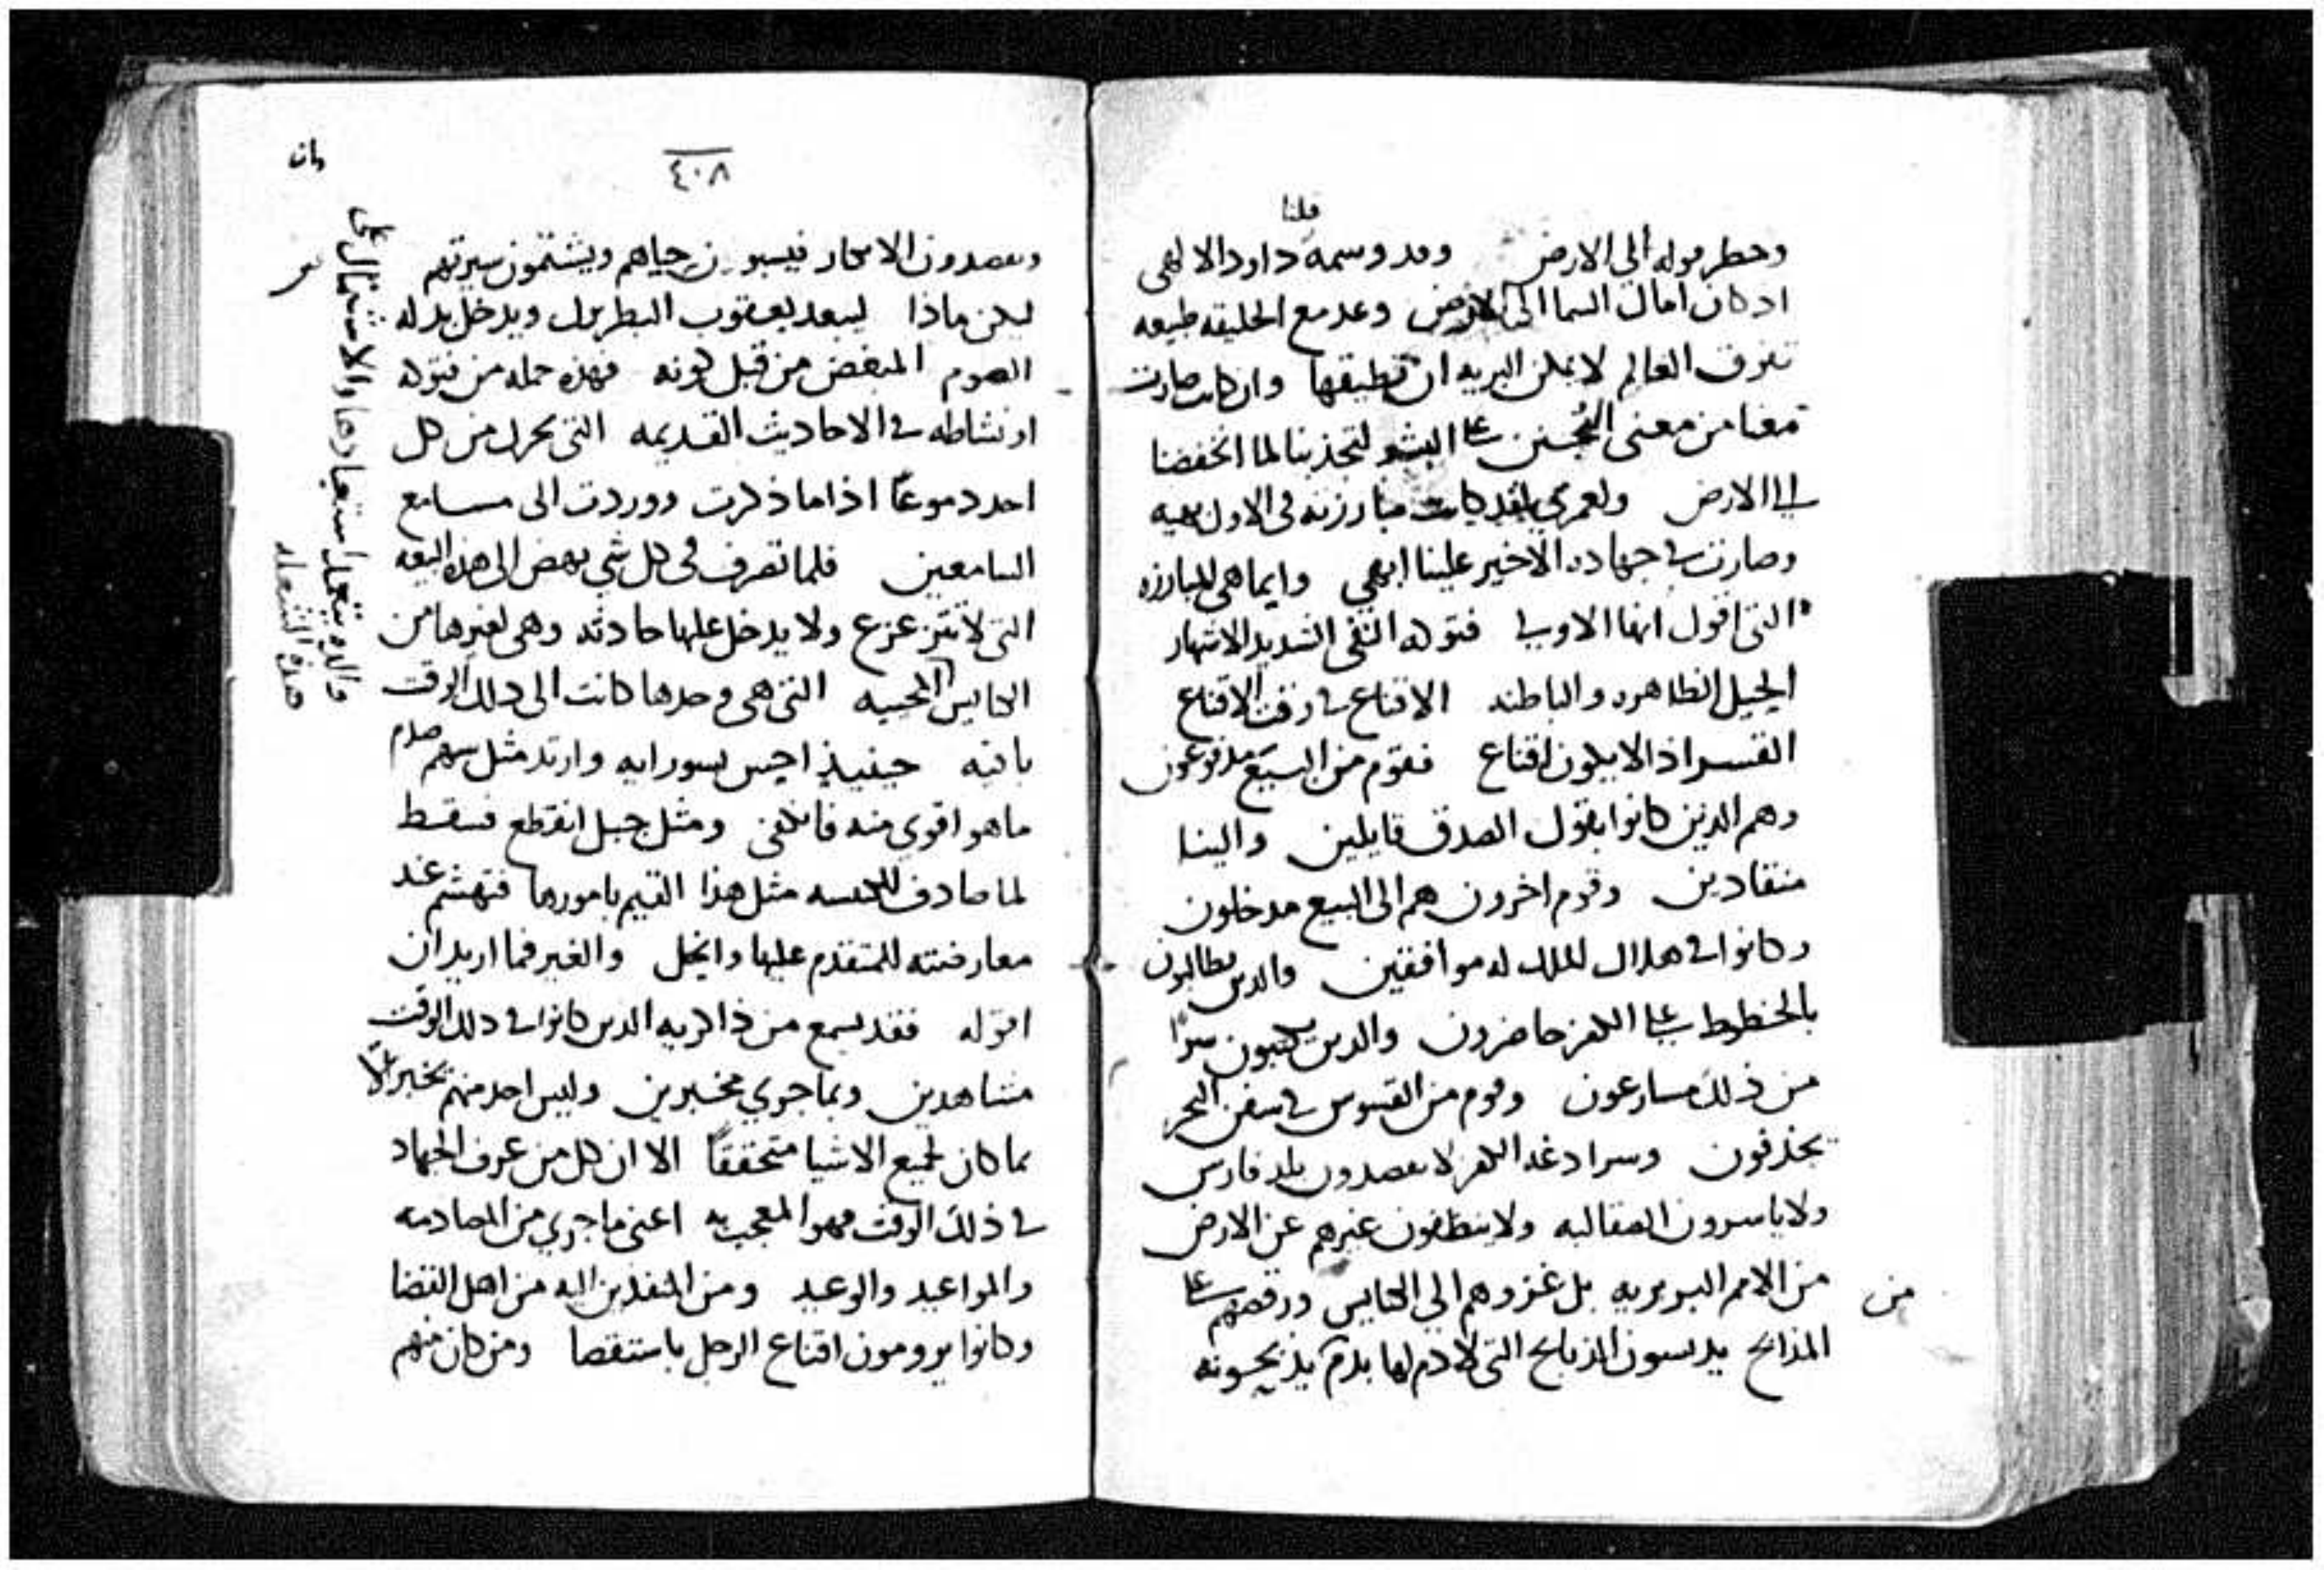 قلنا
وحطر قوله الي الارض وقد وسمه داود الالهي
اذ كان امال السما الى الارض وعدمع الخليقه طبيعه
تفوق العالم لا يمكن البريه ان تطيقها وان كانت صارت
معنا من معنى التحنن على البشر لتجذبنا لما انخفضنا
الي الارض ولعمري لقد كانت مبارزته في الاول بهيه
وصارت في جهاده الاخير علينا ابهي وايما هي المبارزه
التي اقول انها الاوبي فتوله التقي الشديد الاشتهار
الحيل الظاهره والباطنه الاقناع في وقت الاقناع
القسر اذا لا يكون اقناع فقوم من البيع مدفوعون
وهم الدين كانوا بقول الصدق قايلين والينا
منقادين وقوم اخرون هم الى البيع مدخلون
وكانوا في هلال الملك له موافقين والدين يطالبون
بالخطوط على الكفر حاضرون والدين يكتبون سرا
من ذلك مسارعون وقوم من القسوس في سفن البحر
يحذفون لا يقصدون بلد فارس
ولا ياسرون الصقالبه ولا ينظفون غيرهم عن الارض
من الامم البربريه بل غزوهم الي الكنايس ورقصهم على
من
المذابح يدنسون الذبايح التي لا دم لها بدم يذبحونه
٤٠٨
ويقصدون الابكار فيسبون حياهم ويشتمون سيرتهم
ليكن ماذا ليبعد يعقوب البطريرك ويدخل بدله
الصوم المبغض من قبل كونه فهذه جمله من فتوله
او نشاطه في الاحاديث القديمه التي تحرك من كل
احد دموعًا اذا ما ذكرت ووردت الى مسامع
السامعين فلما تصرف في كل شي نهض الى هذه البيعه
التي لا تتزعزع ولا يدخل عليها حادثه وهي لغيرها من
الكنايس المحييه التي هي وحدها كانت الى ذلك الوقت
باقيه حينيذٍ احس بسورايه وارتد مثل سهم صادم
ما هو اقوي منه فانثنى ومثل حبل انقطع فسقط
لما صادف للكنيسه مثل هذا القيم بامورها فتهشم عند
معارضته للمتقدم عليها وانحل والغير فما اريد ان
اقوله فقد يسمع من ذاكريه الدين كانوا في ذلك الوقت
مشاهدين وبما جري مخبرين وليس احد منهم تخبر الا
بما كان لجميع الاشيا متحققًا الا ان كل من عرف الجهاد
في ذلك الوقت فهو المعجب به اعني ما جري من المصادمه
والمواعيد والوعيد ومن المنفذين اليه من اهل القضا
وكانوا يرومون اقناع الرجل باستقصا ومن كان منهم
هذه الشعله